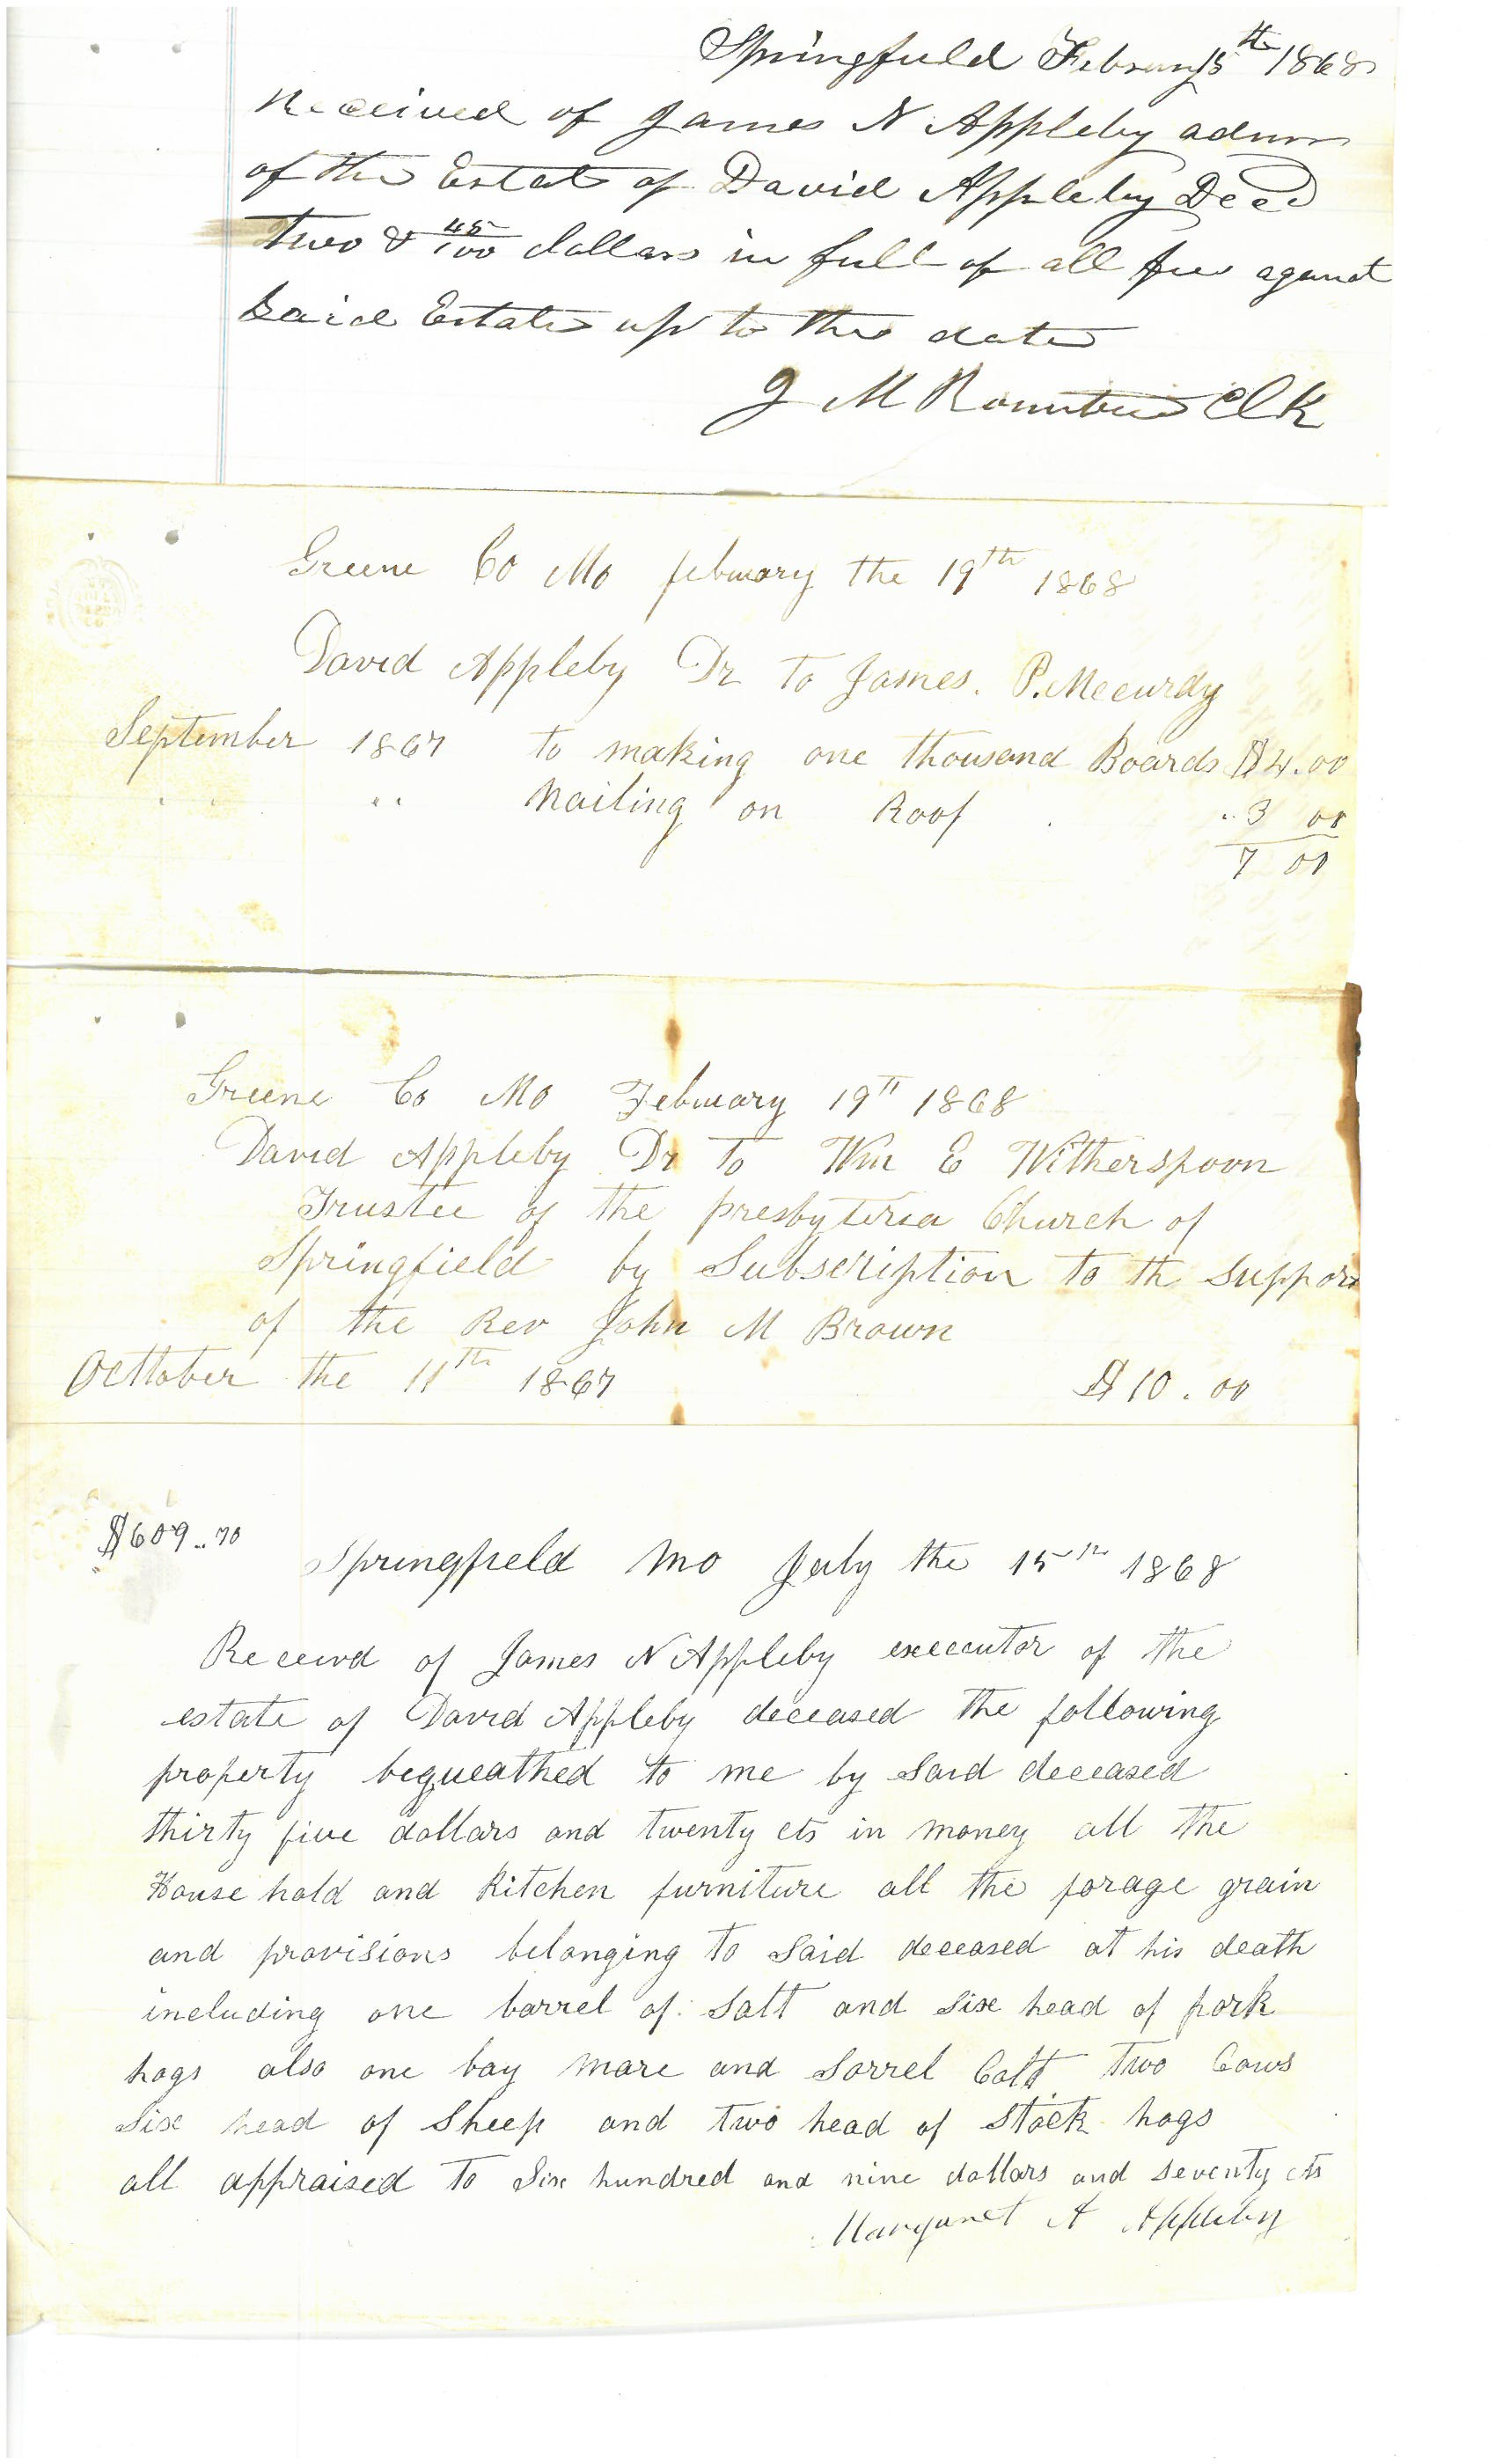 Springfield February 15th 1868
Received of James N Appleby admr
of the Estate of David Appleby Decd
two & 45/100 dollars in full of all fees against
Said Estate up to this date
J M Rountree Clk
Greene Co Mo februory the 19th 1868
David Appleby Dr To James. P. Mccurdy
September 1867 to making one thousand Boards $4.00
" " " Nailing on Roof " 3 00
7 00
Greene Co Mo Februory 19th 1868
David Appleby Dr To Wm E Witherspoon
Trustee of the presbyteria Church of
Springfield by Subscription to th Support
of the Rev John M Brown
Octtober the 11th 1867 $10.00
$609..70
Springfield Mo July the 15th 1868
Receivd of James N Appleby execcutor of the
estate of David Appleby deceased the following
property bequeathed to me by Said deceased
thirty five dollars and twenty cts in money all the
House hold and Kitchen furniture all the forage grain
and provisions belonging to Said deceased at his death
including one barrel of Salt and Six head of pork
hogs also one bay mare and Sorrel Colt Two Cows
Six head of Sheep and two head of Stock hogs
all appraised to Six hundred and nine dollars and seventy cts
Margaret A Appleby